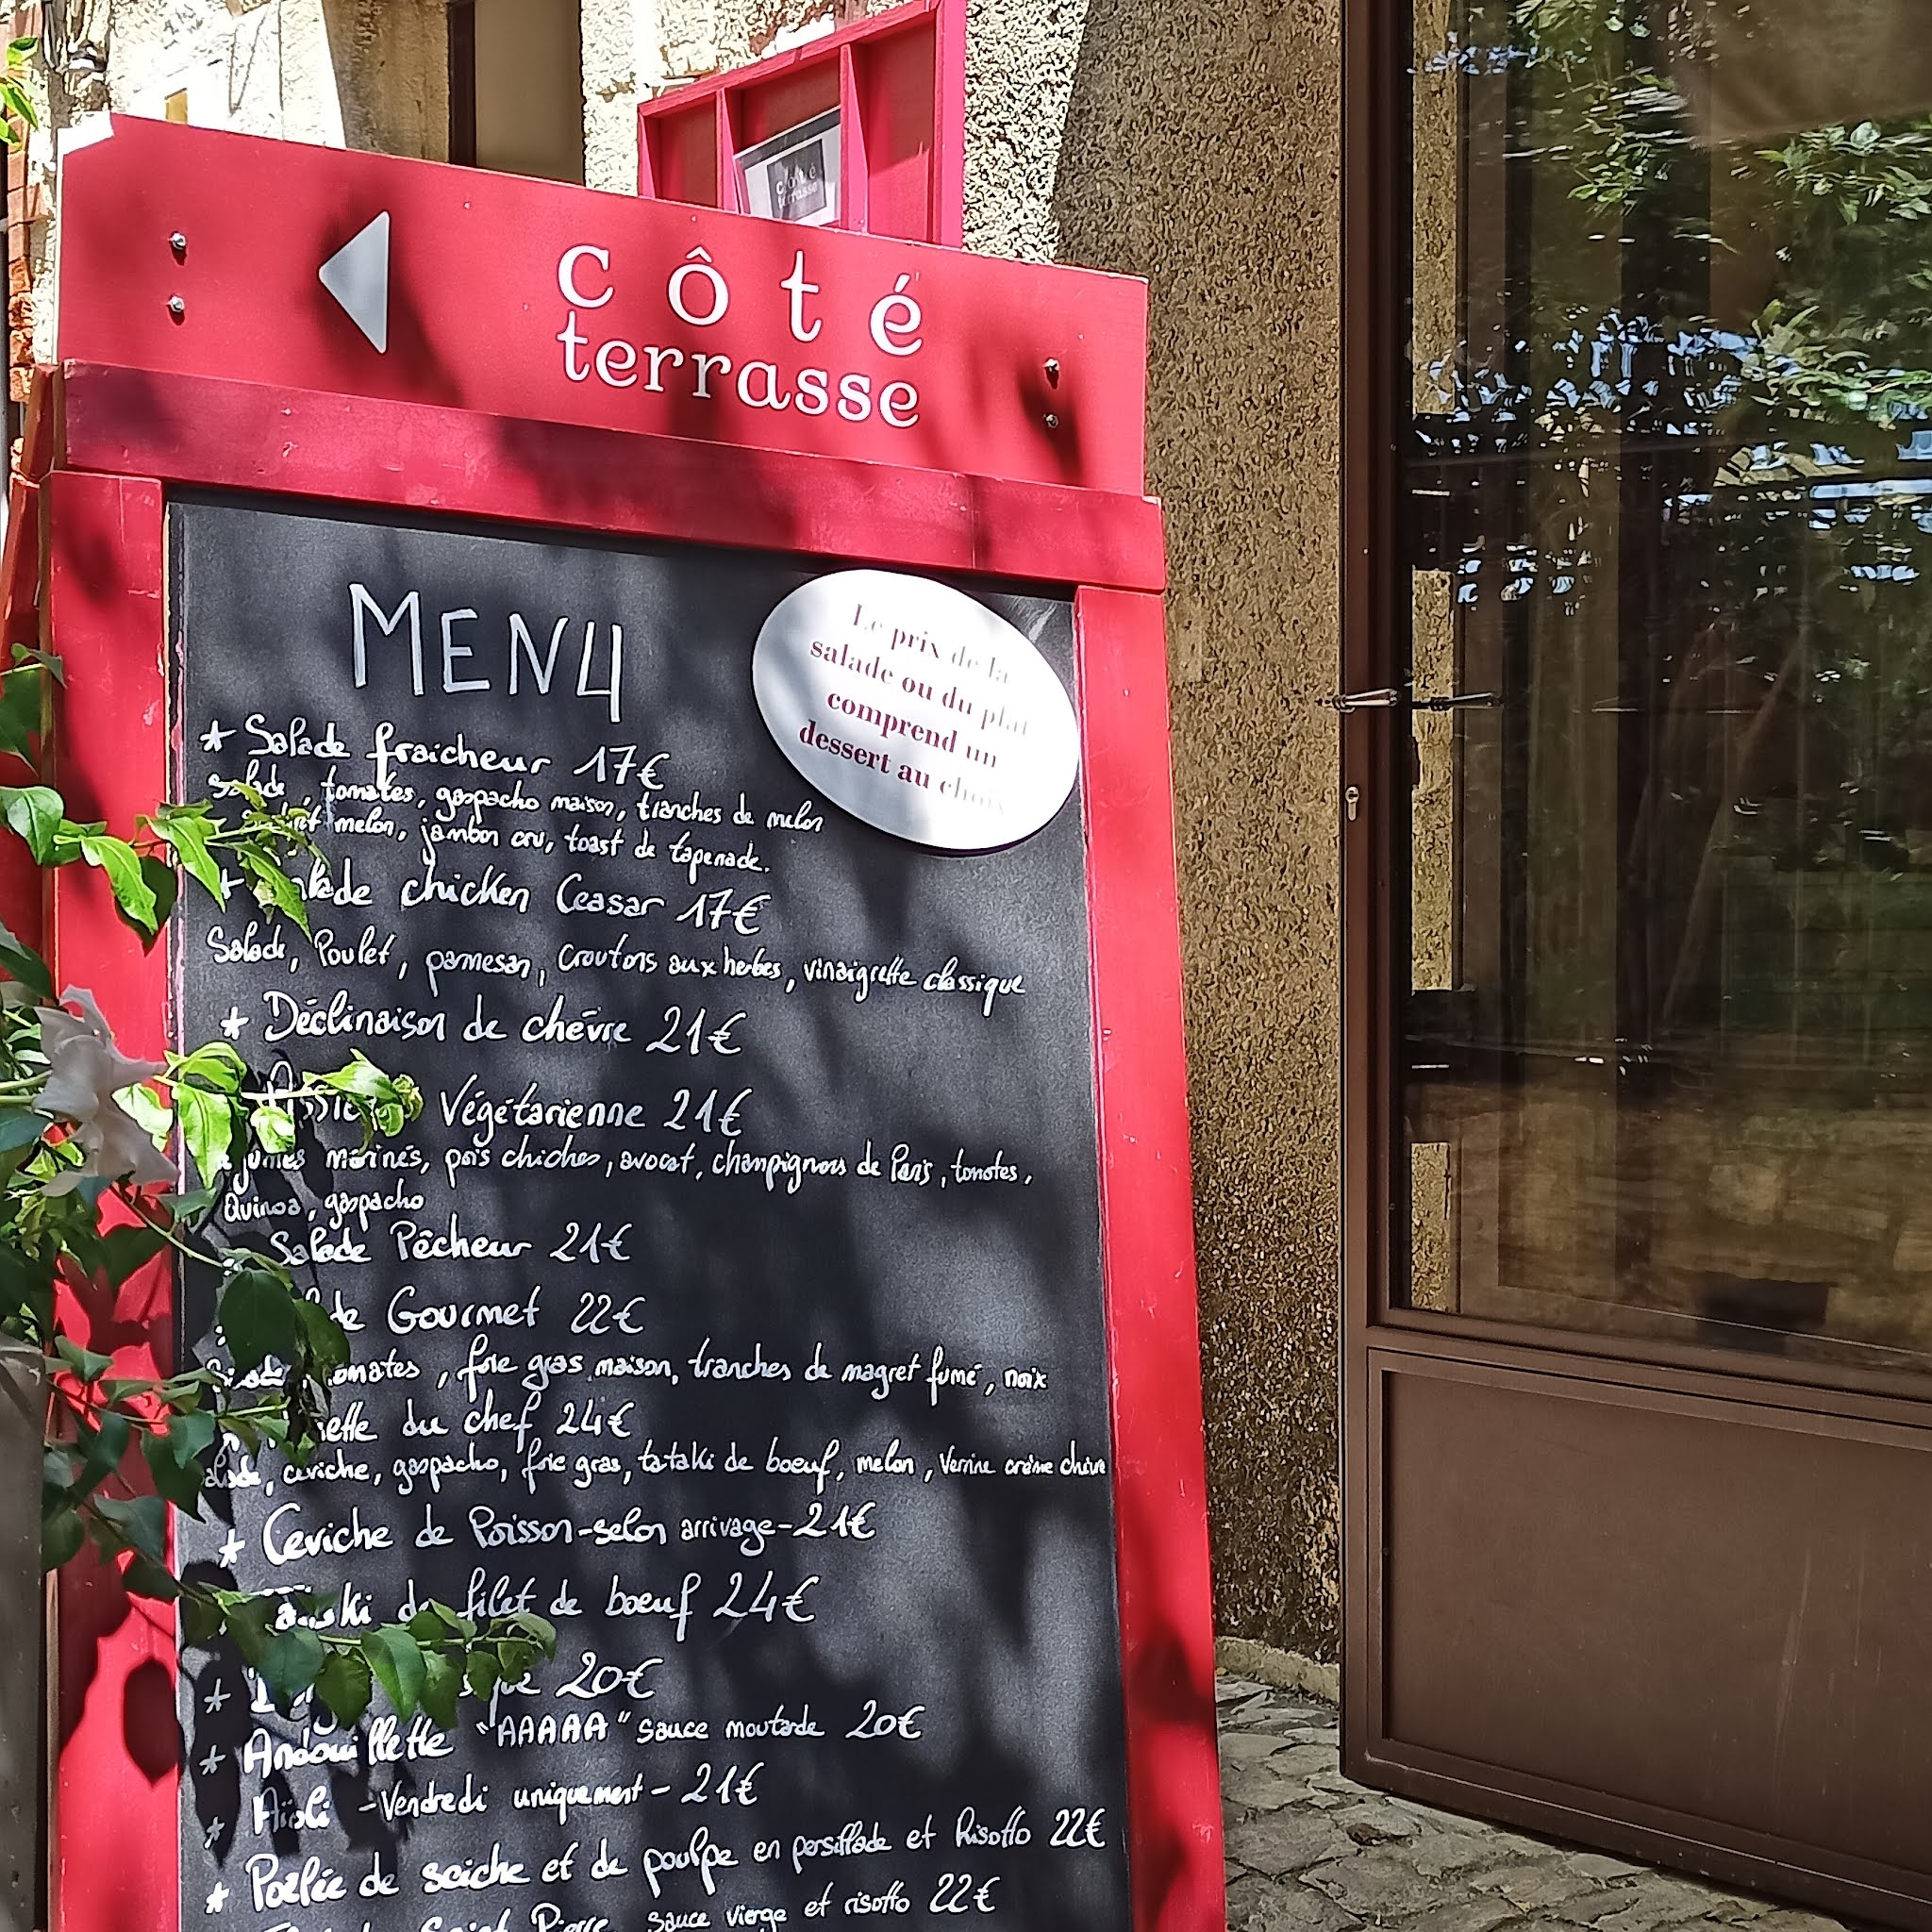 côté
terrasse
côté
terrasse
MENU
Le prix de la
salade ou du plat
comprend un
dessert au choix
* Salade fraicheur 17€
Salade, tomates, gaspacho maison, tranches de melon
melon, jambon cru, toast de tapenade.
Salade chicken Ceasar 17€
Salade, Poulet, parmesan, croutons aux herbes, vinaigrette classique
* Déclinaison de chévre 21€
Végétarienne 21€
marinés, pois chiches, avocat, champignons de Paris, tomates,
Quinoa, gaspacho
Salade Pêcheur 21€
Gourmet 22€
tomates, foie gras maison, tranches de magret fumé, noix
du chef 24€
Salade, ceviche, gaspacho, foie gras, tataki de boeuf, melon, Verrine crème chèvre
* Ceviche de Poisson-selon arrivage-21€
Tataki de filet de boeuf 24€
* 20€
* Andouillette "AAAAA" sauce moutarde 20€
* Aïoli -Vendredi uniquement- 21€
* Poêlée de seiche et de poulpe en persillade et Risotto 22€
Saint Pierre, sauce vierge et risotto 22€